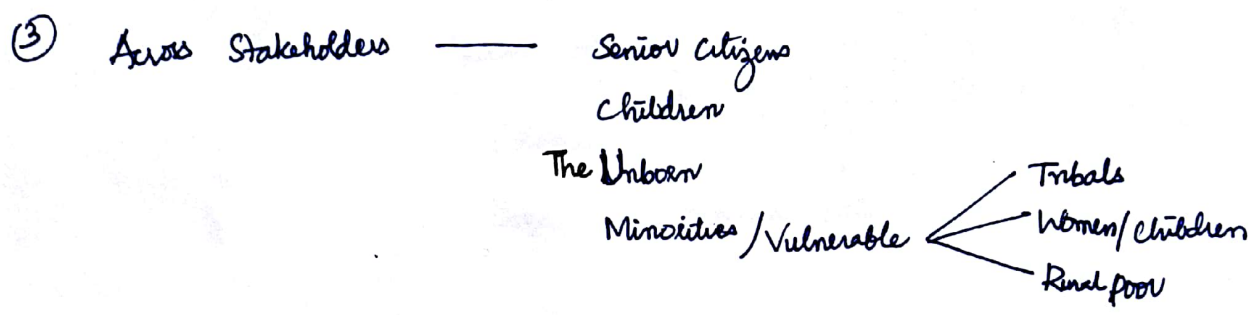 ③ Across Stakeholders — Senior Citizens
Children
The Unborn
Tribals
Minorities / Vulnerable
Women / Children
Rural poor